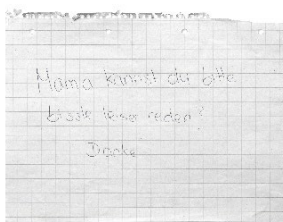 Mama kannst du bitte
bisste leiser reden?
Danke